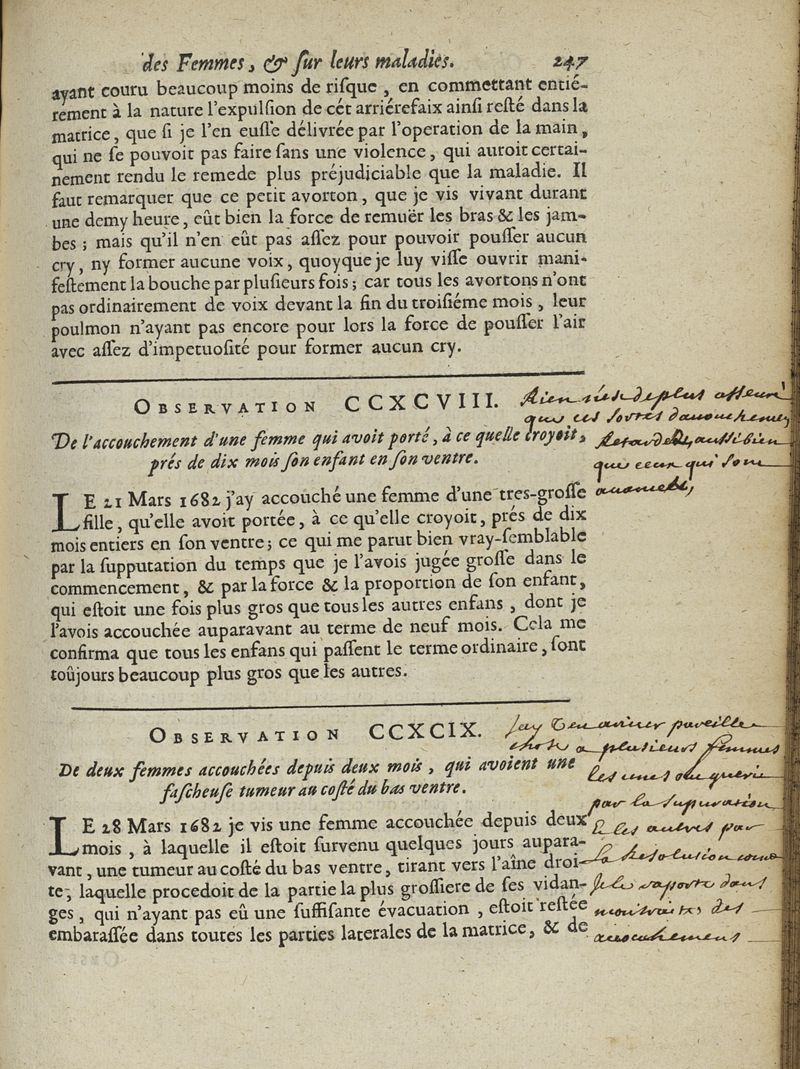 des Femmes, & ſur leurs maladies. 247
ayant couru beaucoup moins de riſque, en commettant entié-
rement à la nature l'expulſion de cét arriérefaix ainſi reſté dans la
matrice, que ſi je l'en euſſe délivrée par l'operation de la main,
qui ne ſe pouvoit pas faire ſans une violence, qui auroit certai-
nement rendu le remede plus préjudiciable que la maladie. Il
faut remarquer que ce petit avorton, que je vis vivant durant
une demy heure, eût bien la force de remuër les bras & les jam-
bes; mais qu'il n'en eût pas aſſez pour pouvoir pouſſer aucun
cry, ny former aucune voix, quoyque je luy viſſe ouvrir mani-
feſtement la bouche par pluſieurs fois; car tous les avortons n'ont
pas ordinairement de voix devant la fin du troiſiéme mois, leur
poulmon n'ayant pas encore pour lors la force de pouſſer l'air
avec aſſez d'impetuoſité pour former aucun cry.
OBSERVATION CCXCVIII.
De l'accouchement d'une femme qui avoit porté, à ce quelle croyoit,
prés de dix mois ſon enfant en ſon ventre.
Rien de plus asseuré
que ces sortes
aussi bien
que ceux qui sont
LE 21 Mars 1682 j'ay accouché une femme d'une tres-groſſe
fille, qu'elle avoit portée, à ce qu'elle croyoit, prés de dix
mois entiers en ſon ventre; ce qui me parut bien vray-ſemblable
par la ſupputation du temps que je l'avois jugée groſſe dans le
commencement, & par la force & la proportion de ſon enfant,
qui eſtoit une fois plus gros que tous les autres enfans, dont je
l'avois accouchée auparavant au terme de neuf mois. Cela me
confirma que tous les enfans qui paſſent le terme ordinaire, ſont
toûjours beaucoup plus gros que les autres.
OBSERVATION CCXCIX.
De deux femmes accouchées depuis deux mois, qui avoient une
faſcheuſe tumeur au coſté du bas ventre.
Jay veu arriver pareille
chose a plusieurs femmes
les unes
par la supuration
& les autres par
la resolution comme
je le raporte dans
mon traité des
acouchemens
LE 28 Mars 1682 je vis une femme accouchée depuis deux
mois, à laquelle il eſtoit ſurvenu quelques jours aupara-
vant, une tumeur au coſté du bas ventre, tirant vers l'aîne droi-
te, laquelle procedoit de la partie la plus groſſiere de ſes vidan-
ges, qui n'ayant pas eû une ſuffiſante évacuation, eſtoit reſtée
embaraſſée dans toutes les parties laterales de la matrice, & de